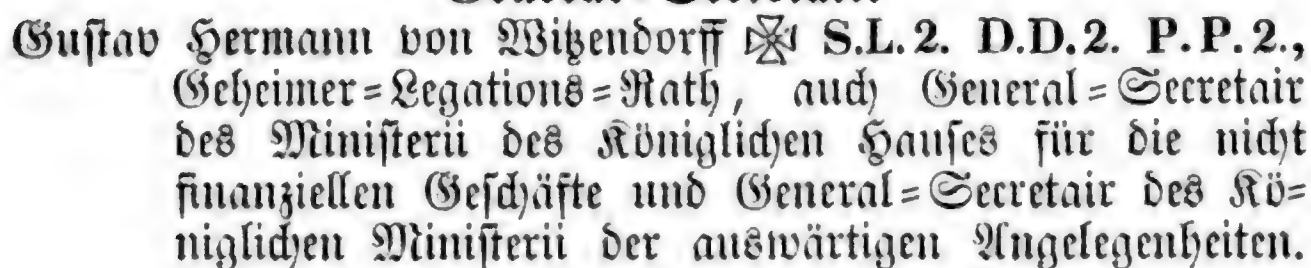 Gustav Hermann von Witzendorff ✠ S.L.2. D.D.2. P.P.2.,
Geheimer=Legations=Rath, auch General=Secretair
des Ministerii des Königlichen Hauses für die nicht
finanziellen Geschäfte und General=Secretair des Kö=
niglichen Ministerii der auswärtigen Angelegenheiten.